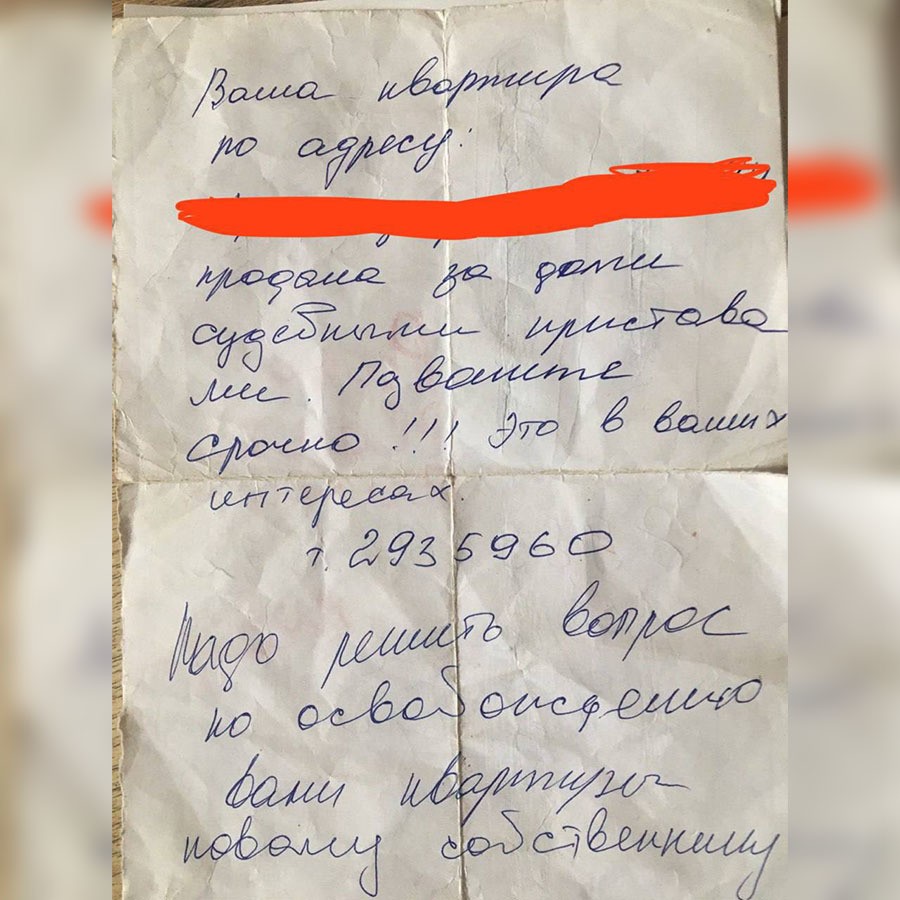 Ваша квартира
по адресу:
продана за долги
судебными пристава
ми. Позвоните
срочно!!! Это в ваших
интересах.
т. 2935960
Надо решить вопрос
по освобождению
вами квартиры
новому собственнику